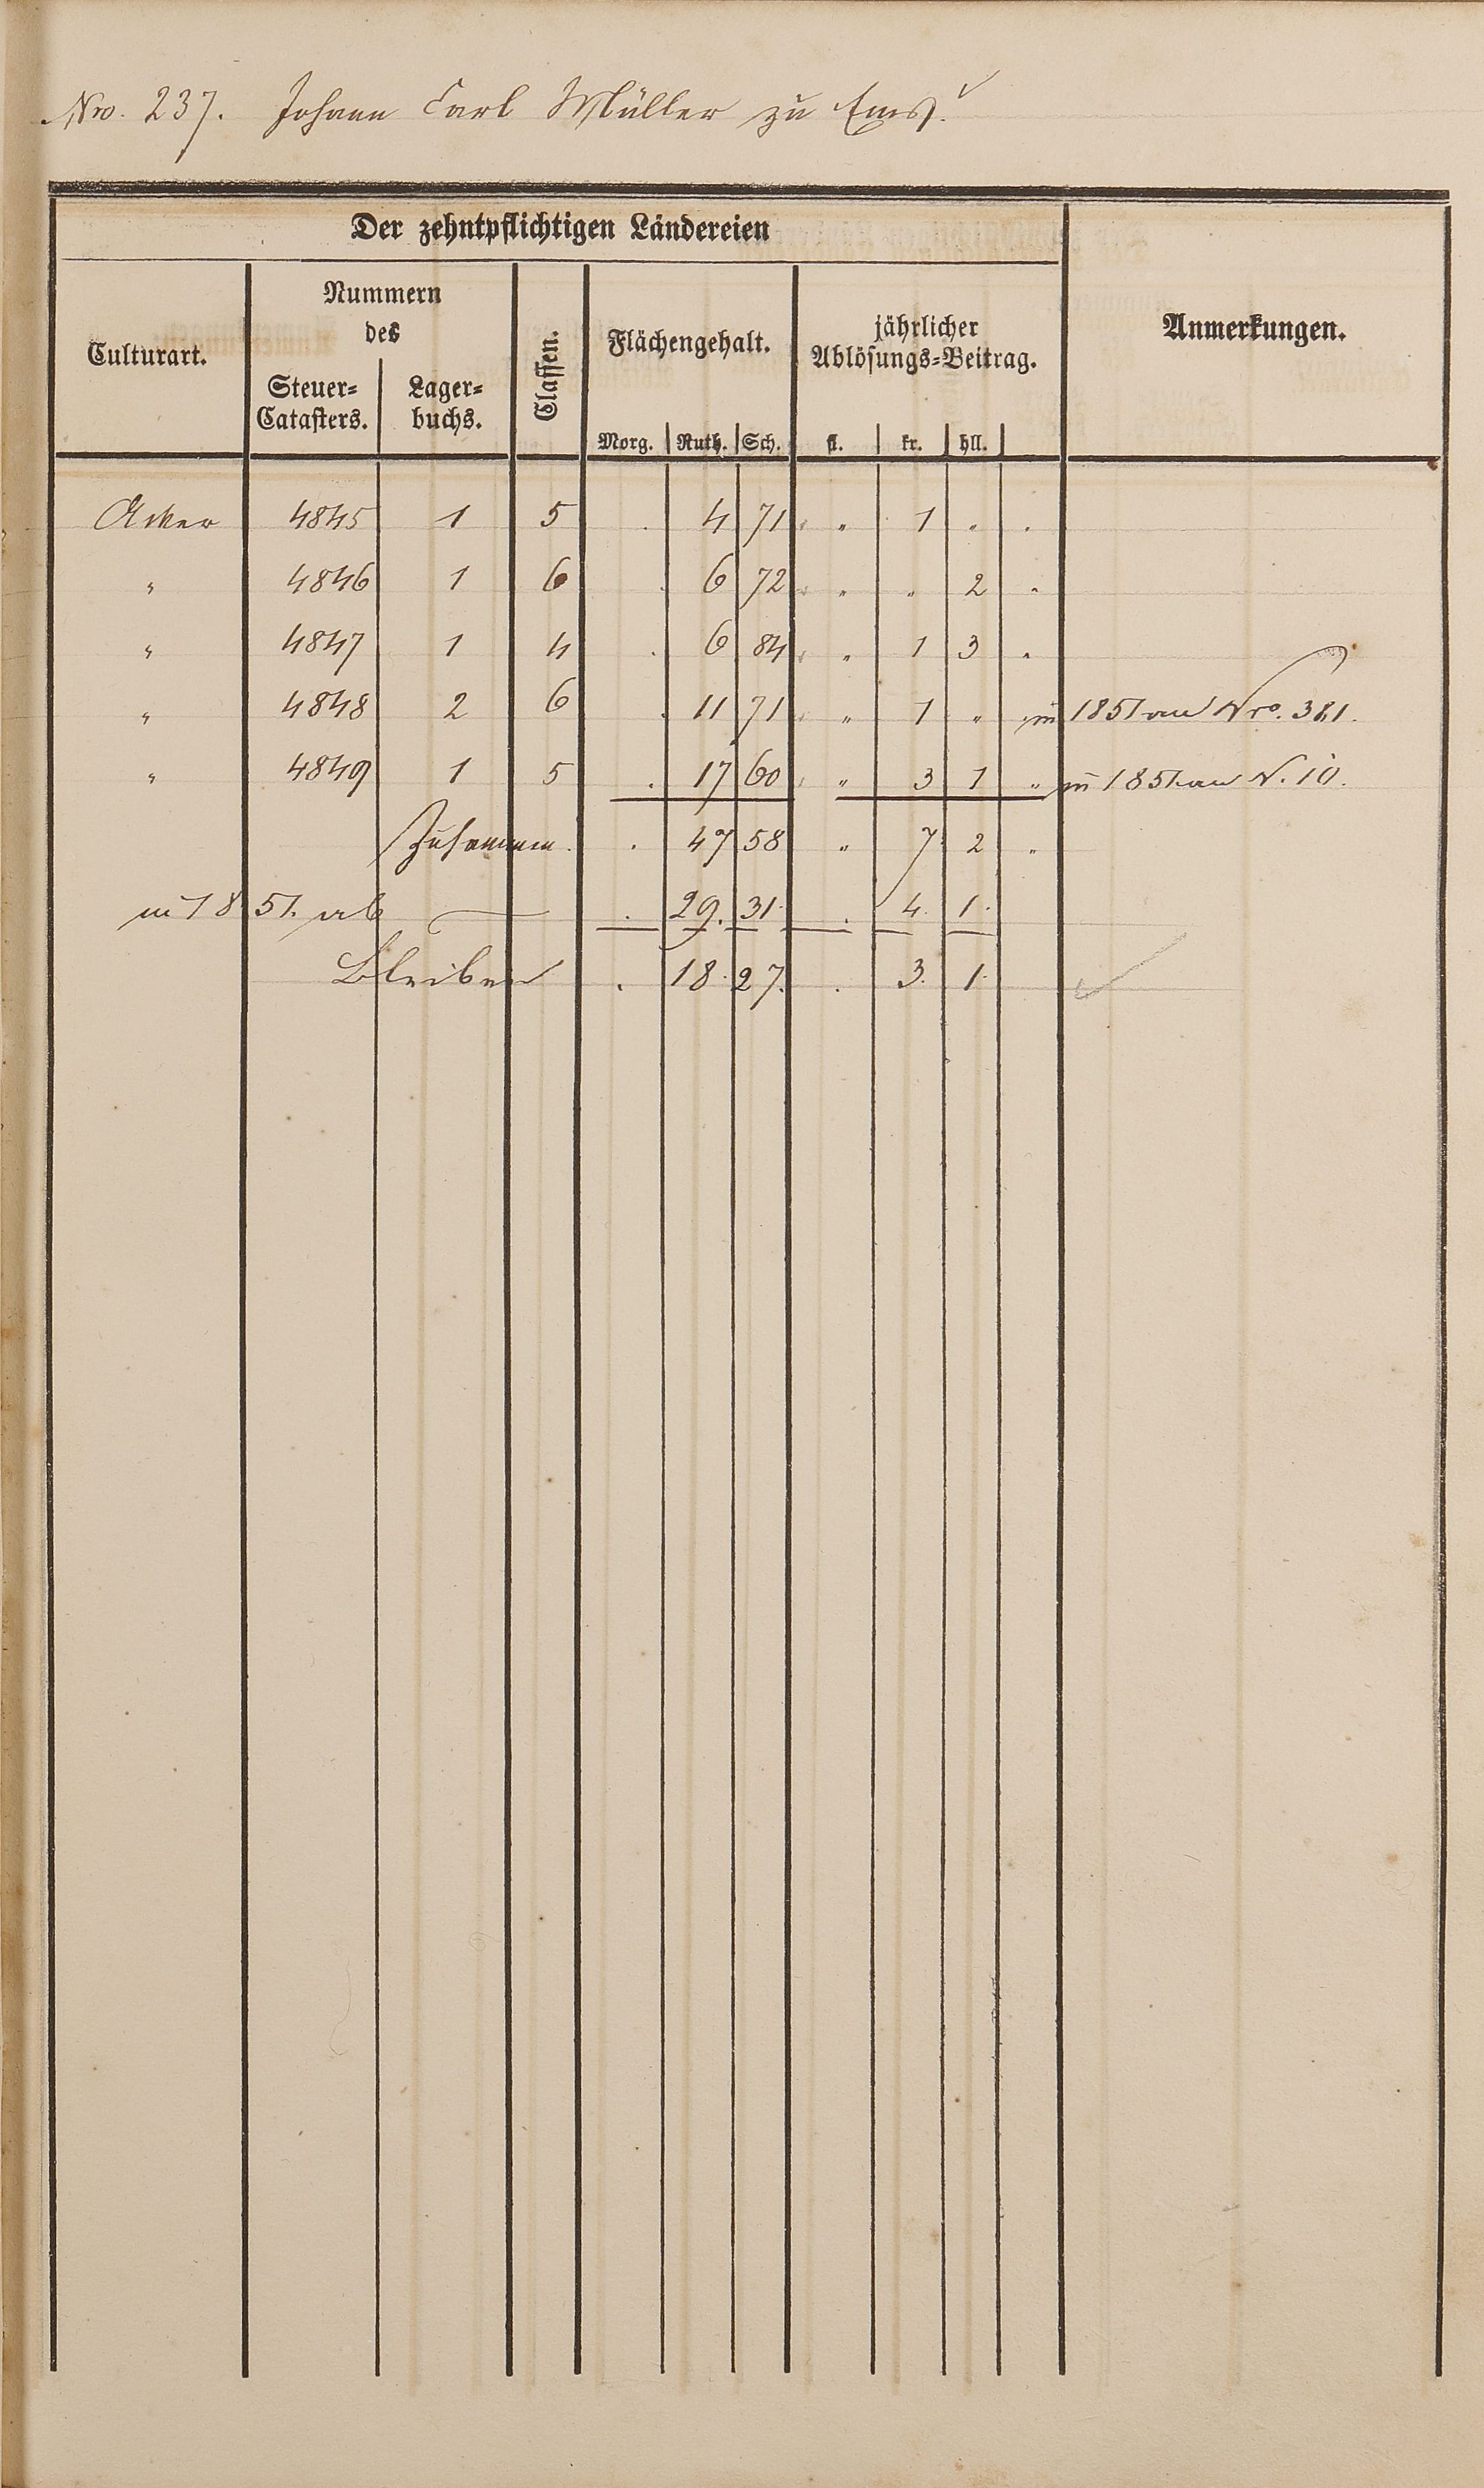 Nro. 237. Johann Carl Müller zu Ems.
Der zehntpflichtigen Ländereien
Culturart.
Nummern
des
Steuer-
Catasters.
Lager-
buchs.
Classen.
Flächengehalt.
Morg. Ruth. Sch.
jährlicher
Ablösungs-Beitrag.
fl. kr. hll.
Anmerkungen.
Acker 4845 1 5 . 4 71 " 1 " "
" 4846 1 6 . 6 72 " " 2 "
" 4847 1 4 . 6 84 " 1 3 "
" 4848 2 6 . 11 71 " 1 " " in 1851 an Nro. 381.
" 4849 1 5 . 17 60 " 3 1 " in 1851 an N. 10.
Zusammen . 47 58 " 7 2 "
in 1851. ab — . 29. 31. . 4. 1.
Bleiben . 18. 27. . 3. 1.